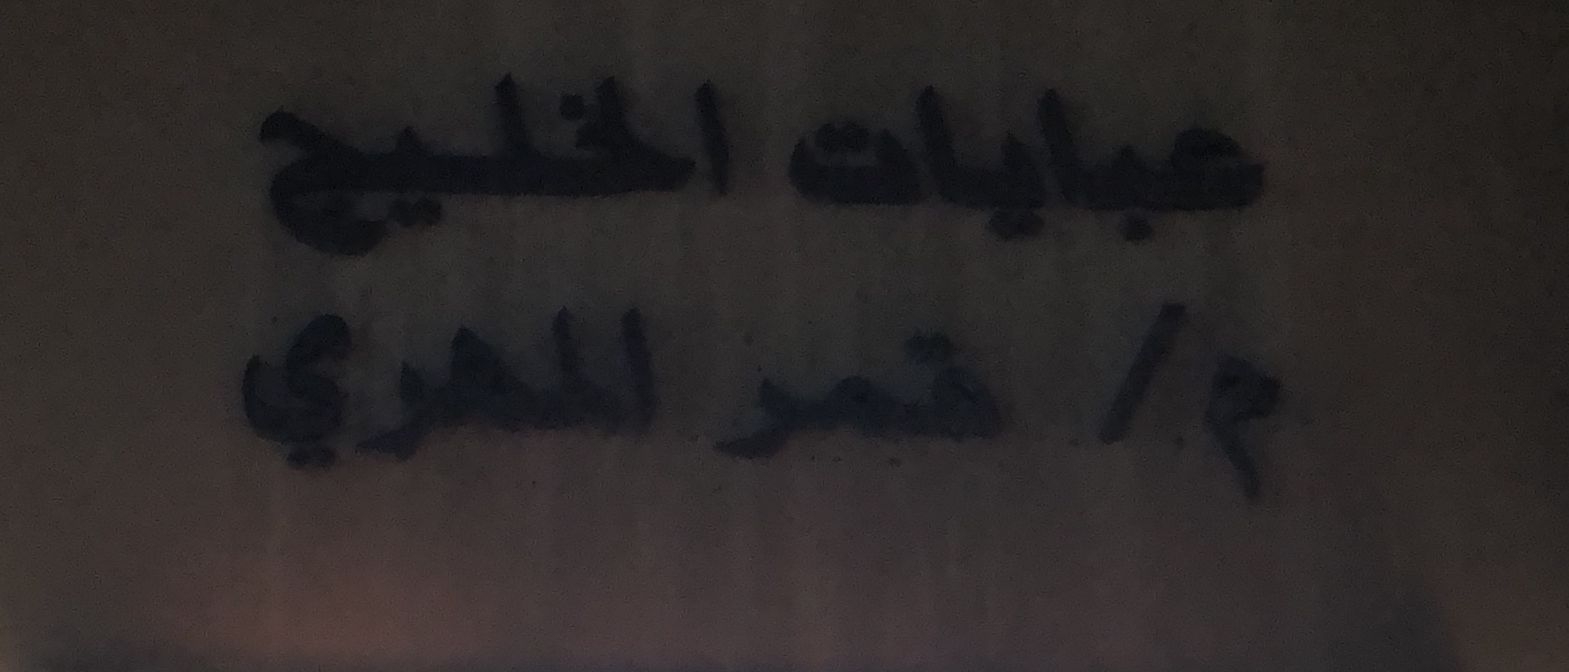 عبايات الخليج
م/ قمر المهري